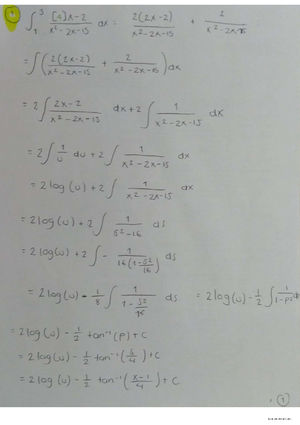 1
∫₁³ [4]x-2 / x²-2x-15 dx = 2(2x-2) / x²-2x-15 + 2 / x²-2x-15
= ∫( 2(2x-2) / x²-2x-15 + 2 / x²-2x-15 )dx
= 2∫ 2x-2 / x²-2x-15 dx + 2∫ 1 / x²-2x-15 dx
= 2∫ 1/u du + 2∫ 1 / x²-2x-15 dx
= 2log(u) + 2∫ 1 / x²-2x-15 dx
= 2log(u) + 2∫ 1 / s²-16 ds
= 2log(u) + 2∫ - 1 / 16(1-s²/16) ds
= 2log(u) - 1/8 ∫ 1 / 1-s²/16 ds = 2log(u) - 1/2 ∫ 1 / 1-p²
= 2log(u) - 1/2 tan⁻¹(p) + C
= 2log(u) - 1/2 tan⁻¹(s/4) + C
= 2log(u) - 1/2 tan⁻¹(x-1/4) + C